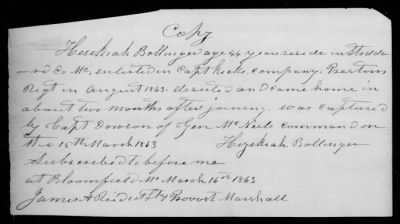 Copy
Hezekiah Bollinger age 44 years reside in Stodda
rd Co Mo, enlisted in Capt Hicks company. Prestons
Regt in August 1862. deserted and came home in
about two months after joining. was captured
by Capt Dowson of Gen Mc Neils command on
the 15th March 1863 Hezekiah Bollinger
Subscribed to before me
at Bloomfield Mo March 16th 1863
James A Reid 1st Lt & Provost Marshall